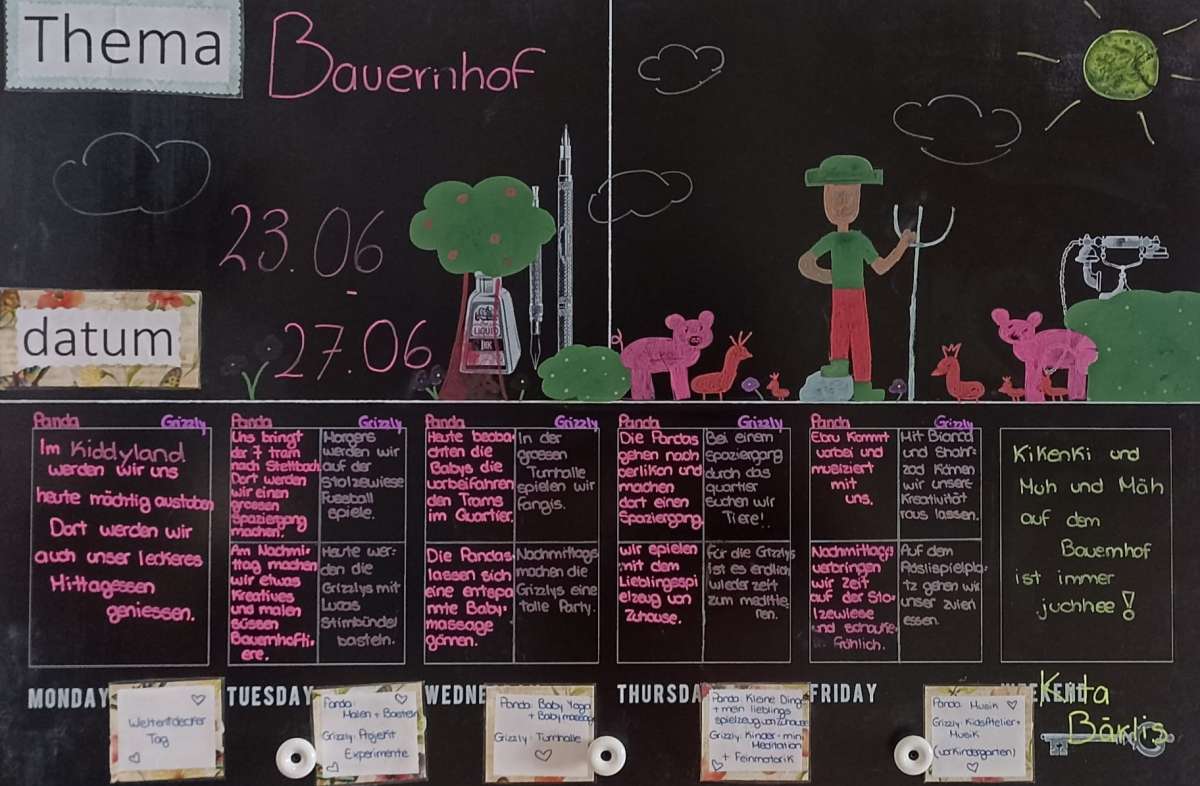 Thema
Bauernhof
23.06
-
27.06
datum
LIQUID
INK
Panda
Grizzly
Im Kiddyland
werden wir uns
heute mächtig austoben
Dort werden wir
auch unser leckeres
Mittagessen
geniessen.
MONDAY
Panda
Uns bringt
der 7 tram
nach Stettbach
Dort werden
wir einen
grossen
Spaziergang
machen.
Grizzly
Morgens
werden wir
auf der
Stolzewiese
Fussball
spiele.
Am Nachmi-
ttag machen
wir etwas
Kreatives
und malen
süssen
Bauernhofti-
ere.
Heute wer-
den die
Grizzlys mit
Lucas
Stirnbündel
basteln.
TUESDAY
Panda
Heute beoba-
chten die
Babys die
vorbeifahren
den Trams
im Quartier.
Grizzly
In der
grossen
Turnhalle
spielen wir
fangis.
Die Pandas
lassen sich
eine entspa
nnte Baby-
massage
gönnen.
Nachmittags
machen die
Grizlys eine
tolle Party.
WEDNE
Panda
Die Pandas
gehen nach
oerlikon und
machen
dort einen
Spaziergang.
Grizzly
Bei einem
Spaziergang
durch das
quartier
suchen wir
Tiere!
wir spielen
mit dem
Lieblingsspi
elzeug von
Zuhause.
für die Grizzlys
ist es endlich
wieder zeit
zum meditie
ren.
THURSDA
Panda
Ebru kommt
vorbei und
musiziert
mit
uns.
Grizzly
Mit Bianca
und Shahr-
zad können
wir unsere
Kreativität
raus lassen.
Nachmittags
verbringen
wir zeit
auf der Sto-
lzewiese
und schaukeln
fröhlich.
Auf dem
Röslispielpla-
tz gehen wir
unser zvieri
essen.
FRIDAY
Kikeriki und
Muh und Mäh
auf dem
Bauernhof
ist immer
juchhee!
Kita
Bärlis
Weltentdecker
Tag
Panda:
Malen + Basteln
Grizzly: Projekt
Experimente
Panda: Baby Yoga
+ Babymassage
Grizzly: Turnhalle
Panda: Kleine Dinge
+ mein lieblings
spielzeug von zuhause
Grizzly: Kinder-mini
Meditation
+ Feinmotorik
Panda: Musik
Grizzly: KidsAtelier +
Musik
(vorkindergarten)